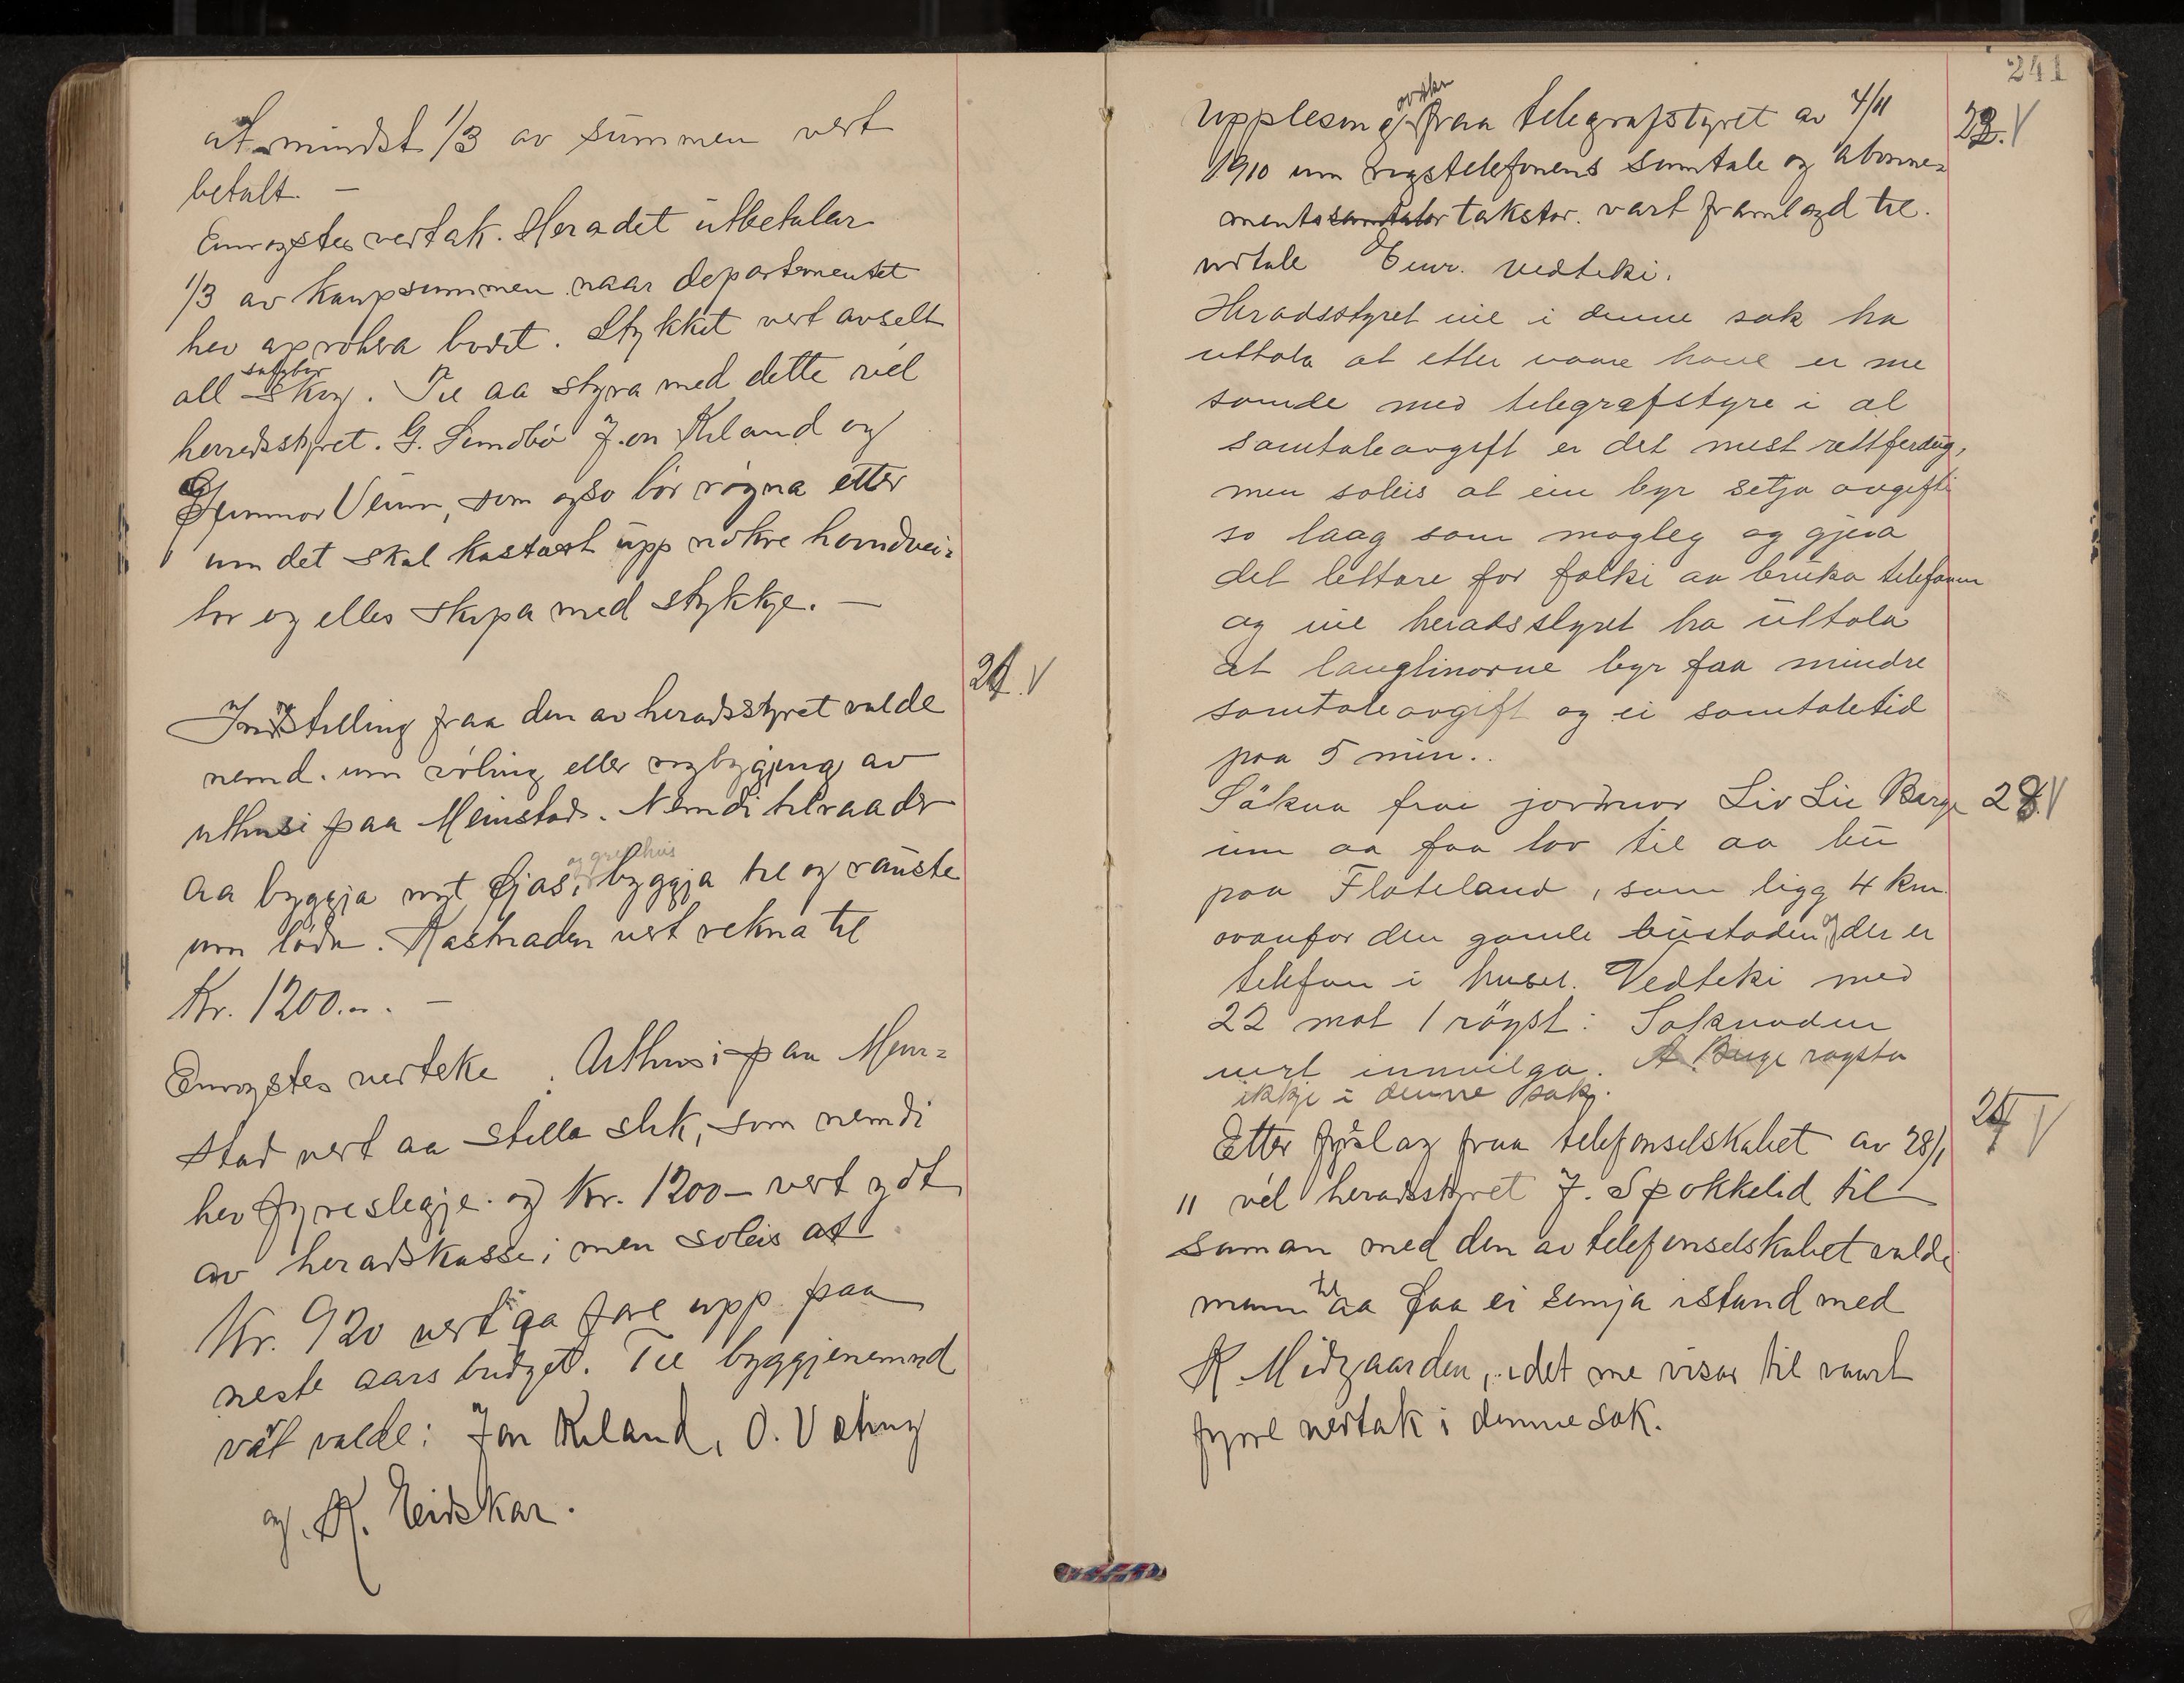 at mindst 1/3 av summen vert
betalt. —
Einrøystes vertak. Heradet utbetalar
1/3 av kaupsummen naar departementet
hev approbera bodet. Stykket vert avselt
salgbar
all skog. Til aa styra med dette vél
herredsstyret. G. Sundbö Jon Kiland og
Gunnar Veum, som ogso bör røgna etter
um det skal kastast upp nokre handvei-
tor og elles skipa med stykkje. —
21. V
Instelling fraa den av heradsstyret valde
nemd. um vøling eller nybygging av
uthusi paa Meinstad. Nemdi tilraader
og grishus
aa byggja nyt fjøs, byggja til og rauste
um löda. Kostnaden vert rekna til
Kr. 1200.-. —
Einrøystes verteke. Uthusi paa Mein-
stad vert aa stella slik, som nemdi
hev fyreslegje. og Kr. 1200 — vert ydt
av heradskassei men soleis at
Kr. 920 vert aa före upp paa
neste aars budget. Til byggjenemnd
vart valde: Jon Kiland, O. Vatny
og K. Eidskar.
241
Upplesing fraa telegrafstyret av 4/11
22. V
1910 um rigstelefonens samtale og abonne-
ments samtalar takster. vart framlagd til
uttale Einr. vedteki.
Heradsstyret vil i denne sak ha
uttala at etter vaare have er me
samde med telegrafstyre i al
samtaleavgift er det mest rettferdig,
men soleis at ein byr setja avgifti
so laag som mogleg og gjera
det lettare for folki aa bruka telefonen
og vil heradsstyret ha uttala
at langlinorne byr faa mindre
samtaleavgift og ei samtaletid
paa 5 min..
Søkna frai jordmor Liv Lie Berge
23. V
um aa faa lov til aa bu
paa Flateland, som ligg 4 km.
ovanfor den gamle bustaden og der er
telefon i huset. Vedteki med
22 mot 1 röyst: Søknaden
vert innvilga. A. Berge røysta
ikkje i denne sak.
24 V
Etter fyslag fraa telefonselskabet av 28/1
11 vél heradsstyret J. Spokkelid til
saman med den av telefonselskabet valde
mann til aa faa ei semja istand med
K Midgaarden, idet me visar til vaart
fyrre vertak i denne sak.